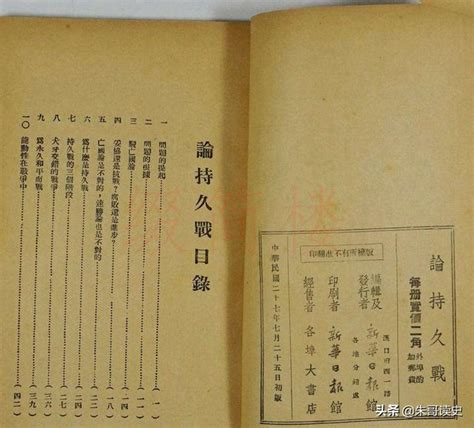 論持久戰
每册實價二角
外埠的
加郵費
印翻准不有所權版
漢口府西一路
編輯及
發行者 新華日報館
各地分銷處
印刷者 新華日報館
經售者 各埠大書店
中華民國二十七年七月二十五日初版
論持久戰目錄
一 問題的提起
二 問題的根據
三 駁亡國論
四 妥協還是抗戰？腐敗還是進步？
五 亡國論是不對的，速勝論也是不對的
六 爲什麼是持久戰
七 持久戰的三個階段 (二七)
八 犬牙交錯的戰爭 (三六)
九 爲永久和平而戰 (三九)
一〇 能動性在戰爭中 (四二)
头条 @朱哥读史